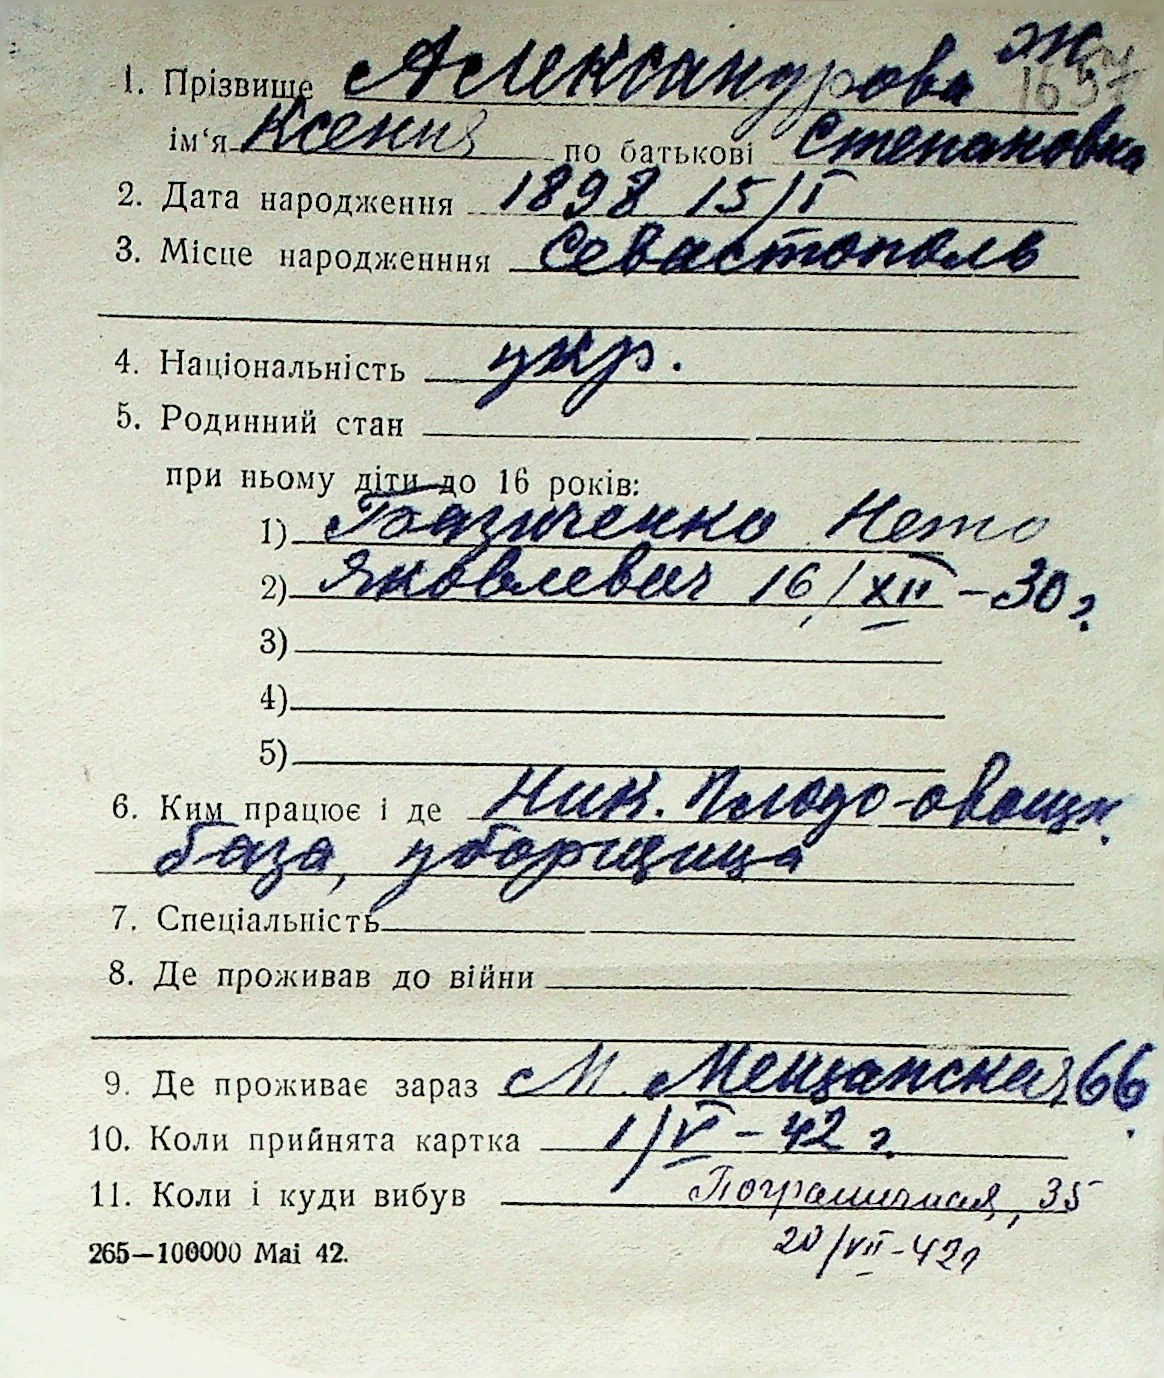 Ж
1. Прізвище Александрова
ім'я Ксения по батькові Степановна
2. Дата народження 1898 15/I
3. Місце народженння Севастополь
4. Національність укр.
5. Родинний стан
при ньому діти до 16 років:
1)
2) Яковлевич 16/XII-30 г.
3)
4)
5)
6. Ким працює і де Ник. Плодо-овощн.
база, уборщица
7. Спеціальність
8. Де проживав до війни
9. Де проживає зараз М. Мещанская, 66
10. Коли прийнята картка 1/VI-42 г.
11. Коли і куди вибув Пограничная, 35
20/VII-42 г
265—100000 Mai 42.